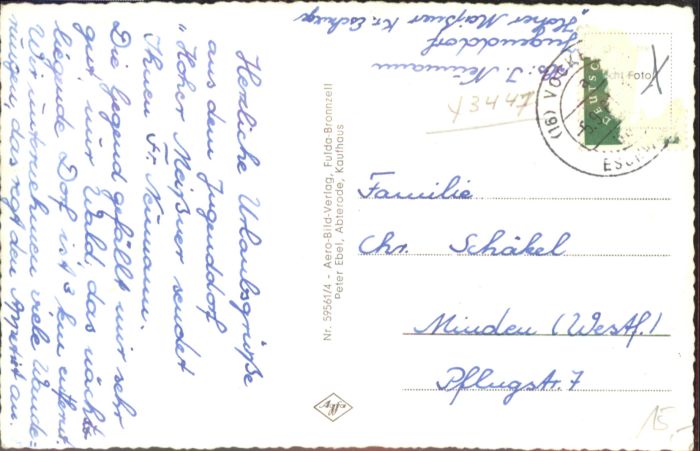 Herzliche Urlaubsgrüße
aus dem Jugenddorf
"Hoher Meißner sendet
Ihnen Fr. Neumann.
Die Gegend gefällt mir sehr
gut, nur Wald, das nächst
liegende Dorf ist 3 km entfernt.
Wir unternehmen viele Wande-
rungen, das regt den Appetit an.
J. Neumann
Jugenddorf
"Hoher Meißner Kr. Eschwege
Y3447
Echt Foto
X
(16) VOCKE
ESCHW
DEUTS
Familie
Chr. Schäkel
Minden (Westf.)
Pflugstr. 7
Nr. 59561/4 - Aero-Bild-Verlag, Fulda-Bronnzell
Peter Ebel, Abterode, Kaufhaus
Agfa
15,-